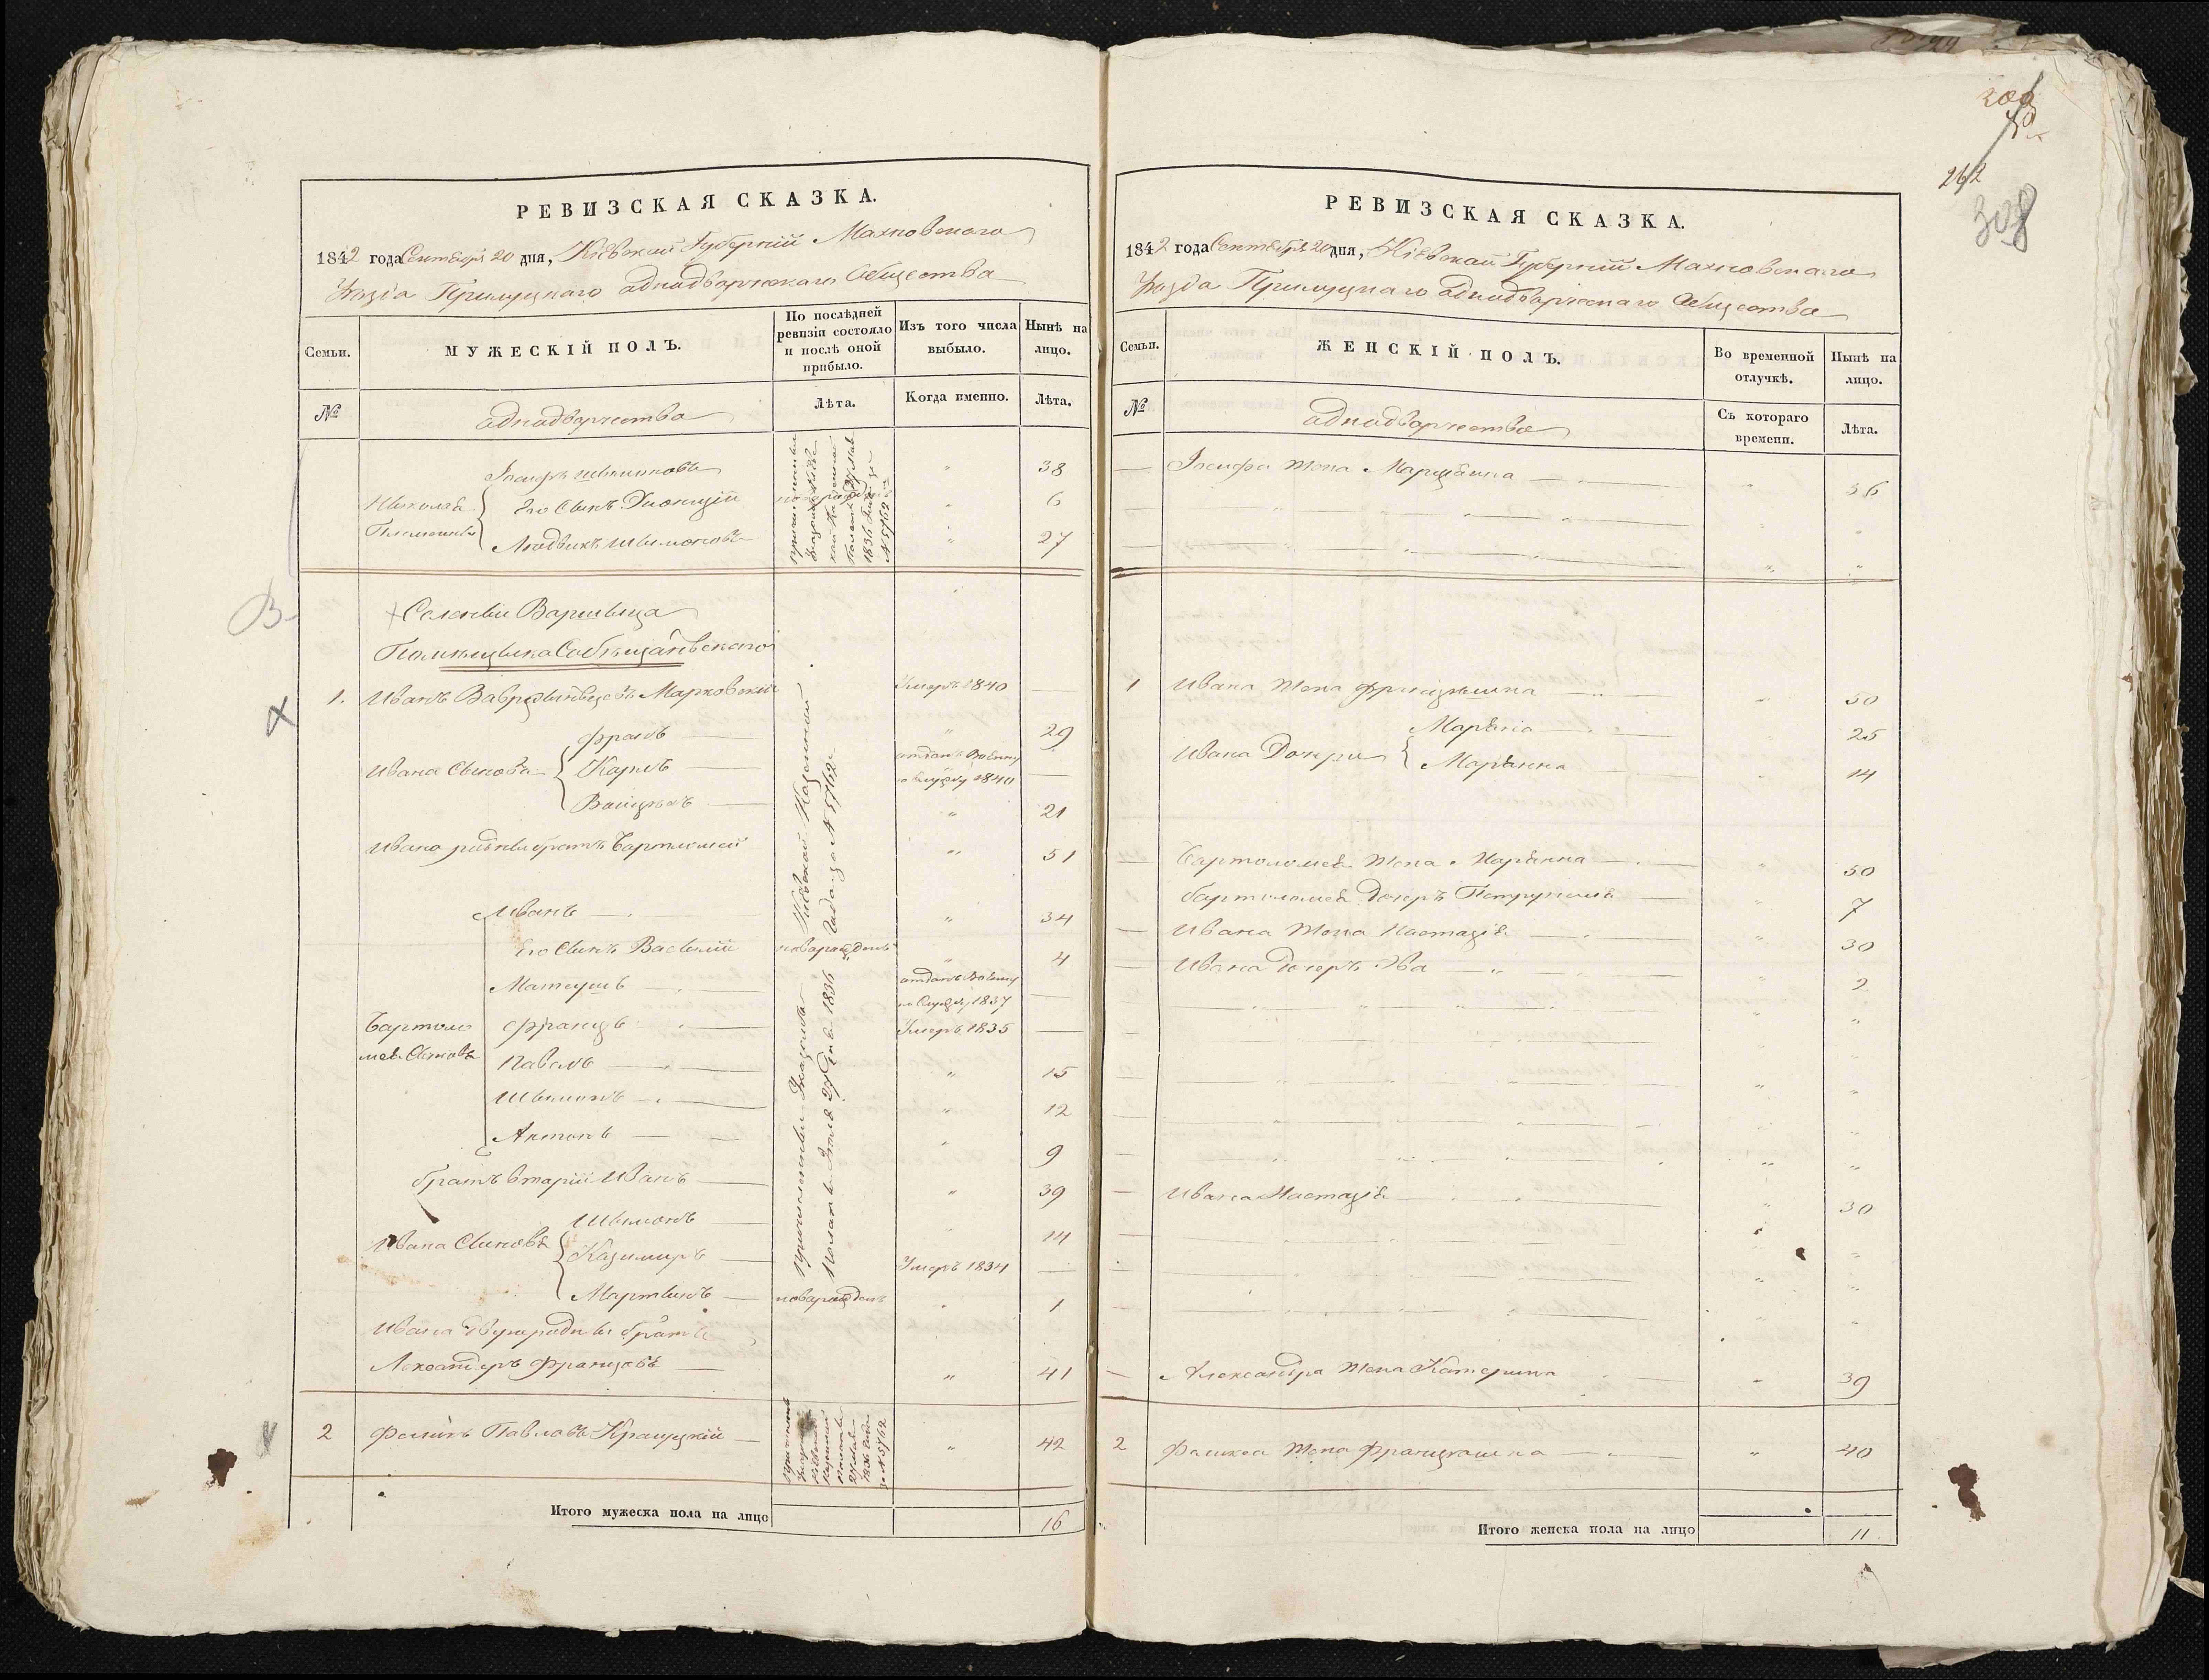 РЕВИЗСКАЯ СКАЗКА.
1842 года Сентября 20 дня, Кіевской Губерніи Махновскаго
Уезда Прилуцкаго однодворческаго Общества
Семьи.
МУЖЕСКІЙ ПОЛЪ.
По послѣдней ревизіи состояло и послѣ оной прибыло.
Изъ того числа выбыло.
Нынѣ на лицо.
№
однодворчества
Лѣта.
Когда именно.
Лѣта.
Іосифъ Шимоновъ " 38
Его Сынъ Дионизій " 6
Николая
Людвикъ Шимоновъ " 27
Причислены
1836 Года за
№ 5762
В
Селенiи Вариивца
Помѣщика
1. Иванъ Марковскій Умеръ 1840
Франъ " 29
Ивана Сынова Карлъ отданъ Военну
ю службу 1840 —
Войцехъ 21
Ивана родный братъ Бартломей " 51
Иванъ " 34
Его Сынъ Василій новорожденъ " 4
Матеушъ отданъ Военну
ю Службу 1837 —
Бартоло Францъ Умеръ 1835 —
мея Сыновья Павелъ " 15
Шимонъ " 12
Антонъ " 9
братъ вторій Иванъ " 39
Шимонъ " 14
Ивана Сыновья Казимиръ Умеръ 1834 —
Мартинъ новорожденъ " 1
Ивана двуродный братъ
Александеръ Францовъ " 41
Причислены Указомъ Кіевской Казенной
Полаты 27 1836 Года за № 5762
2 Павловъ " 42
1836 Года
за № 5762
Итого мужеска пола на лицо 16
300
262
308
РЕВИЗСКАЯ СКАЗКА.
1842 года Сентября 20 дня, Кіевской Губерніи Махновскаго
Уезда Прилуцкаго однодворческаго Общества
Семьи.
ЖЕНСКІЙ ПОЛЪ.
Во временной отлучкѣ.
Нынѣ на лицо.
№
однодворчества
Съ котораго времени.
Лѣта.
Іосифа жена Марцѣина 36
1 Ивана жена 50
Маріна 25
Ивана Дочери Маріянна 14
Бартоломея жена Маріянна 50
Бартоломея дочерь Петрунеля 7
Ивана жена Настазія 30
Ивана дочерь Эва 2
Ивана Настазія 30
Александра жена Катерина 39
2 жена Францишка 40
Итого женска пола на лицо 11